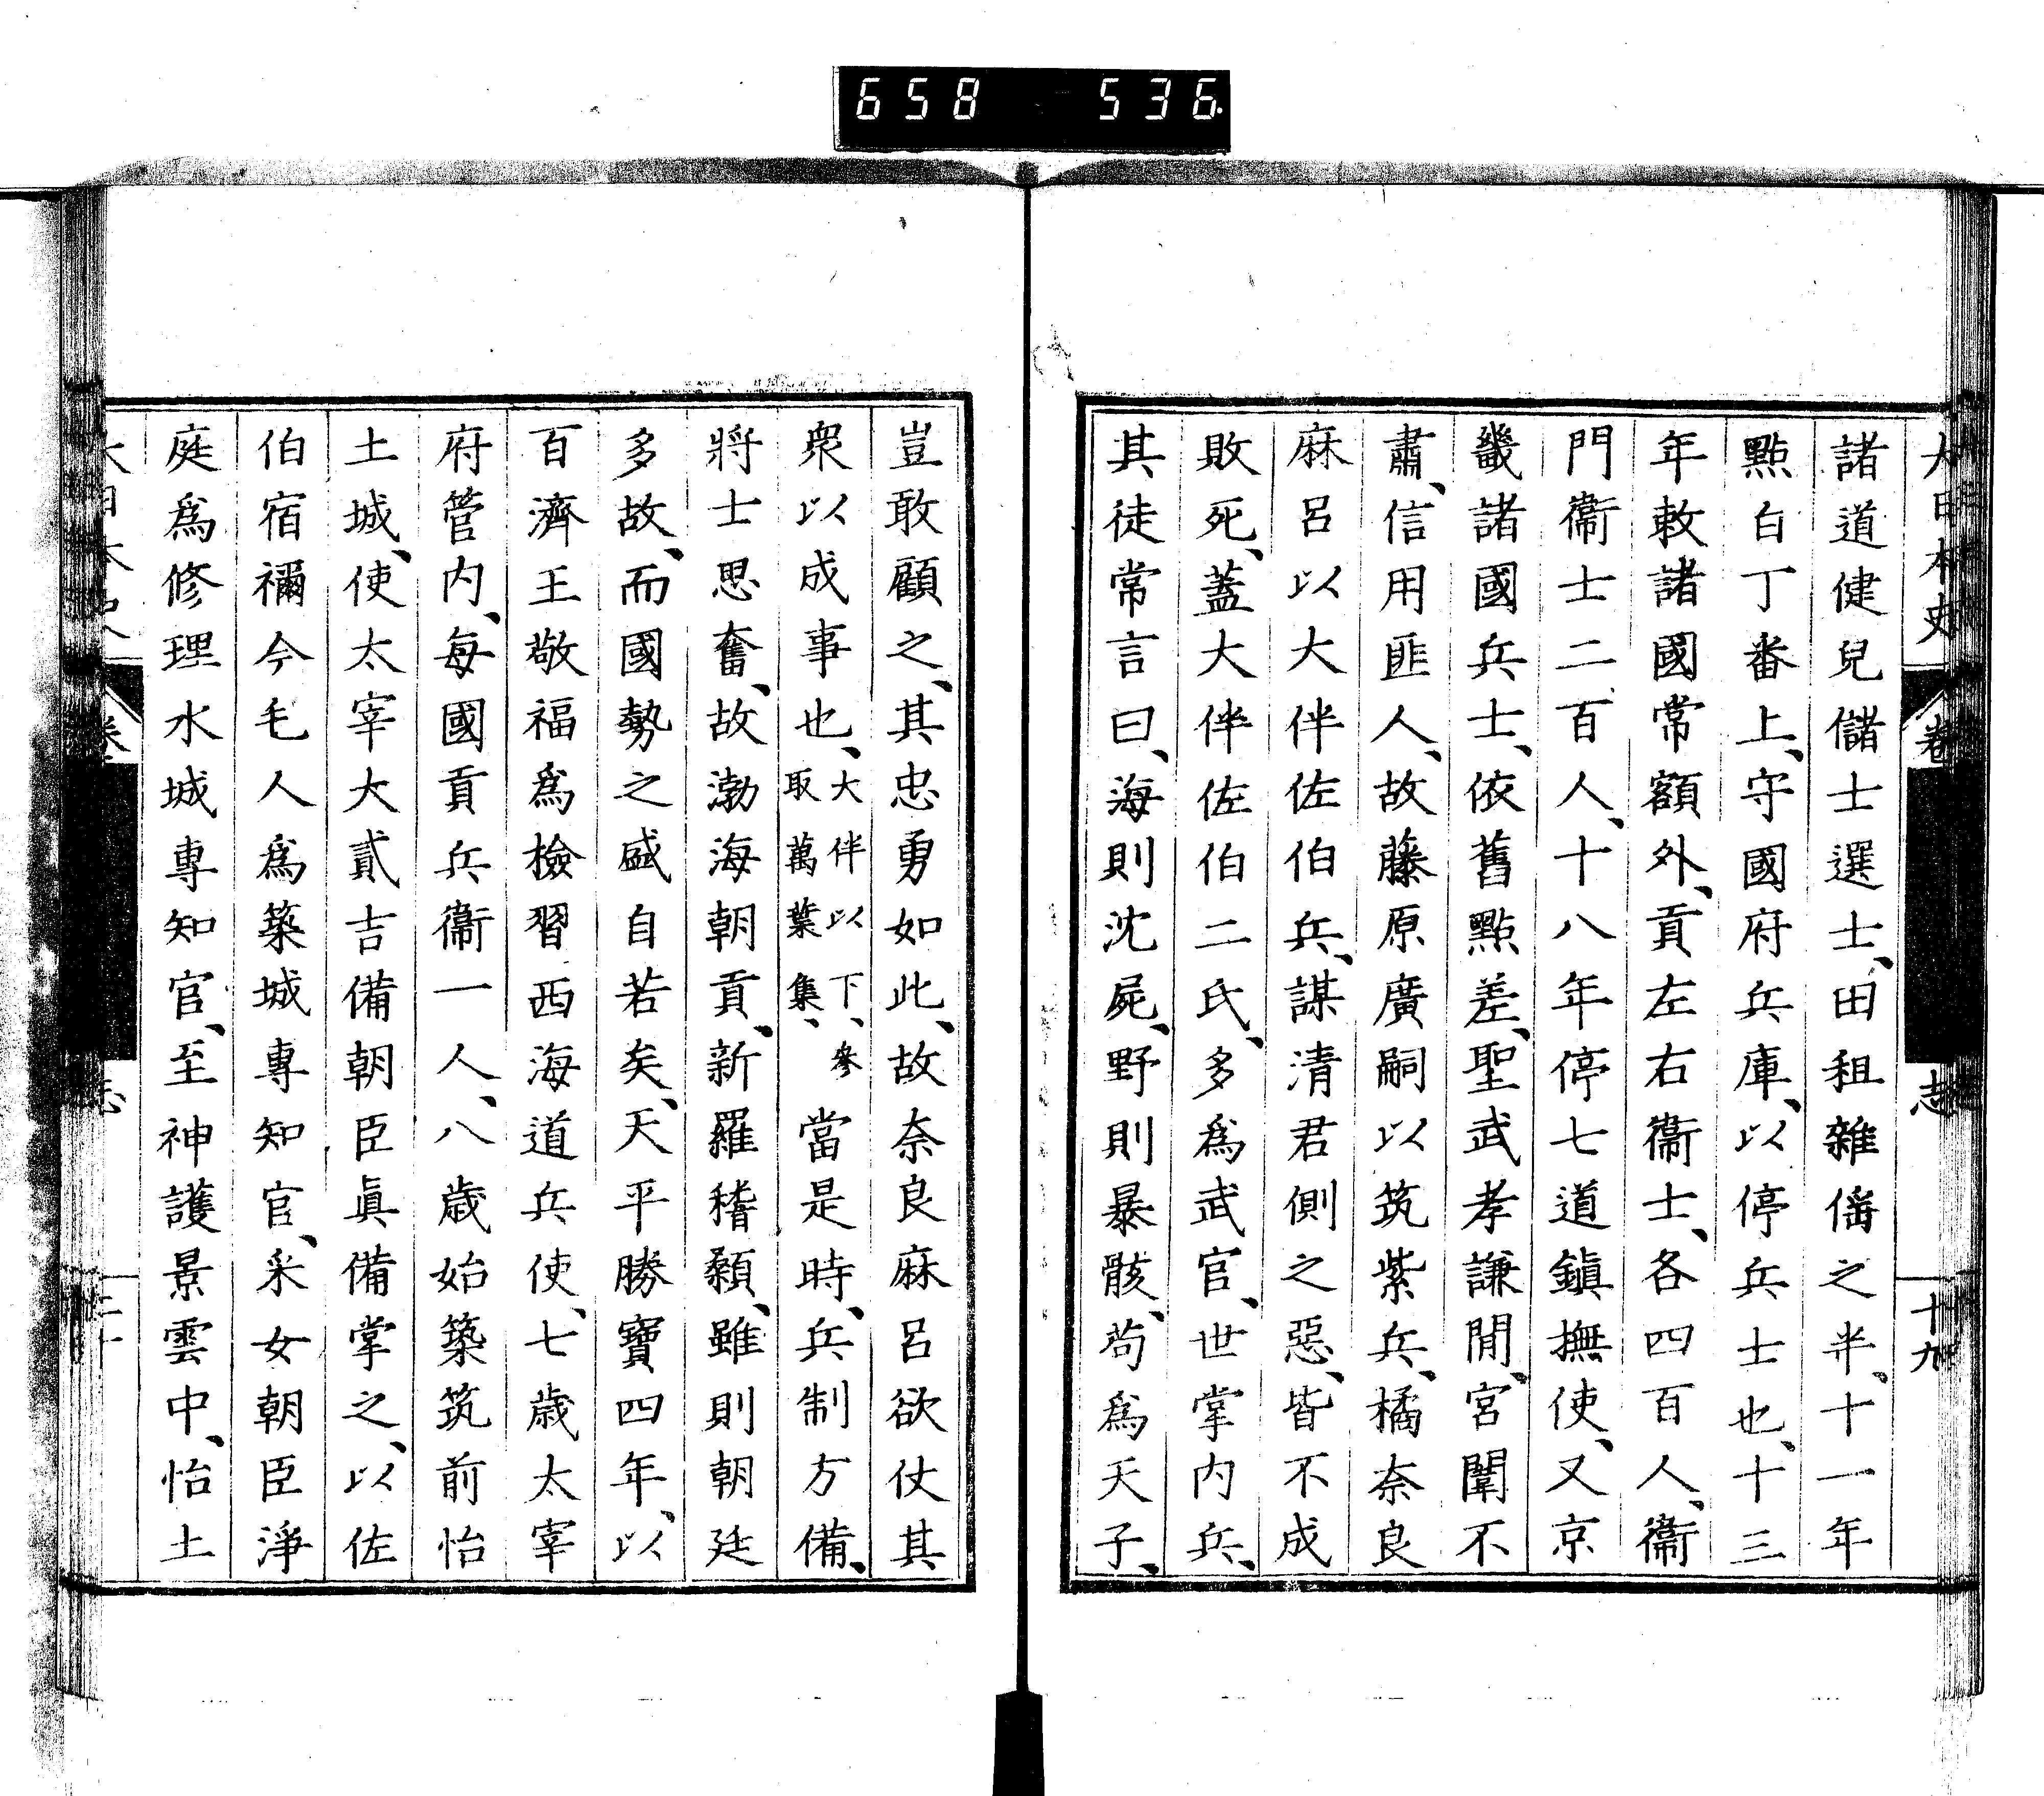 658 536
大日本史 卷 志 十九
諸道健兒儲士選士、田租雜徭之半、十一年
點白丁番上、守國府兵庫、以停兵士也、十三
年敕諸國常額外、貢左右衞士、各四百人、衞
門衞士二百人、十八年停七道鎭撫使、又京
畿諸國兵士、依舊點差、聖武孝謙閒、宮闈不
肅、信用匪人、故藤原廣嗣以筑紫兵、橘奈良
麻呂以大伴佐伯兵、謀清君側之惡、皆不成
敗死、蓋大伴佐伯二氏、多爲武官、世掌内兵、
其徒常言曰、海則沈屍、野則暴骸、苟爲天子、
豈敢顧之、其忠勇如此、故奈良麻呂欲仗其
衆以成事也、大伴以下、參取萬葉集、當是時、兵制方備、
將士思奮、故渤海朝貢、新羅稽顙、雖則朝廷
多故、而國勢之盛自若矣、天平勝寶四年、以
百濟王敬福爲檢習西海道兵使、七歳太宰
府管内、每國貢兵衞一人、八歳始築筑前怡
土城、使太宰大貳吉備朝臣眞備掌之、以佐
伯宿禰今毛人爲築城專知官、釆女朝臣淨
庭爲修理水城專知官、至神護景雲中、怡土